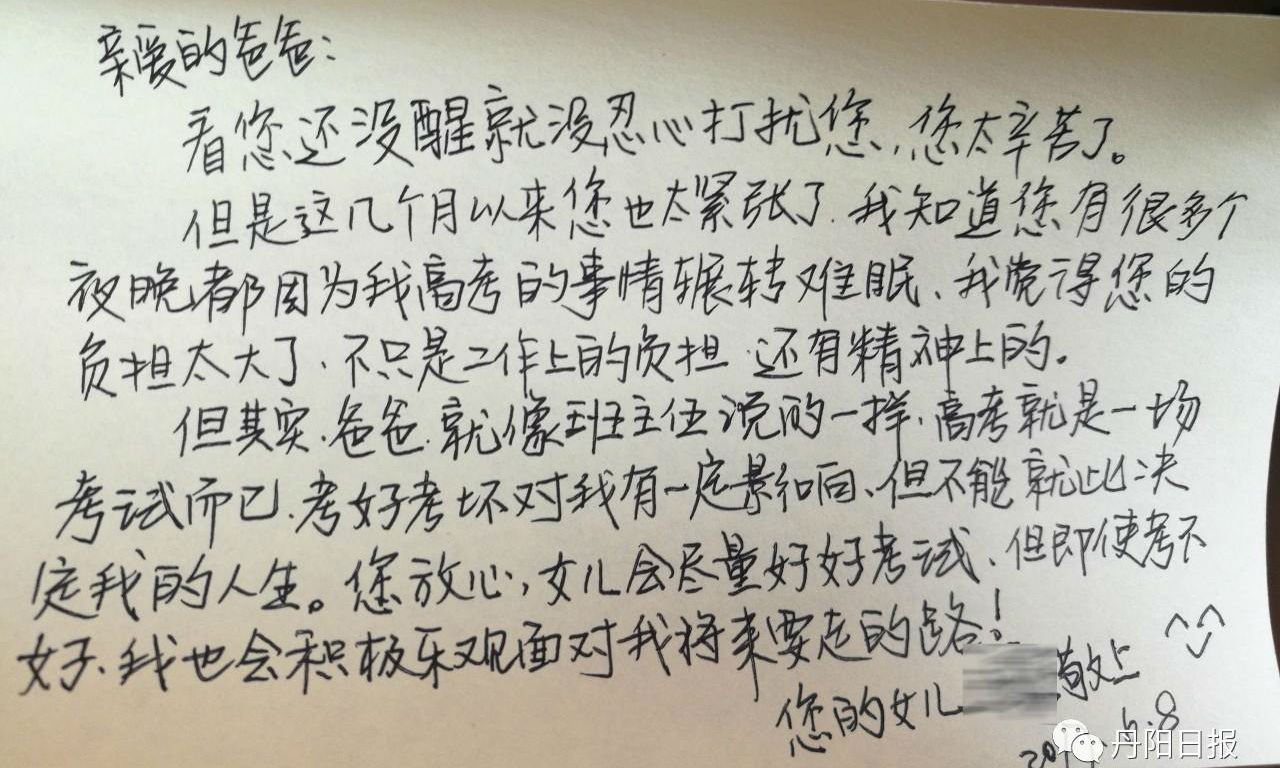 亲爱的爸爸：
看您还没醒就没忍心打扰您，您太辛苦了。
但是这几个月以来您也太紧张了，我知道您有很多个
夜晚都因为我高考的事情辗转难眠、我觉得您的
负担太大了、不只是工作上的负担 还有精神上的。
但其实、爸爸、就像班主任说的一样，高考就是一场
考试而已、考好考坏对我有一定影响、但不能就此决
定我的人生。您放心，女儿会尽量好好考试、但即使考不
好、我也会积极乐观面对我将来要走的路！
您的女儿 敬上
6.8
丹阳日报